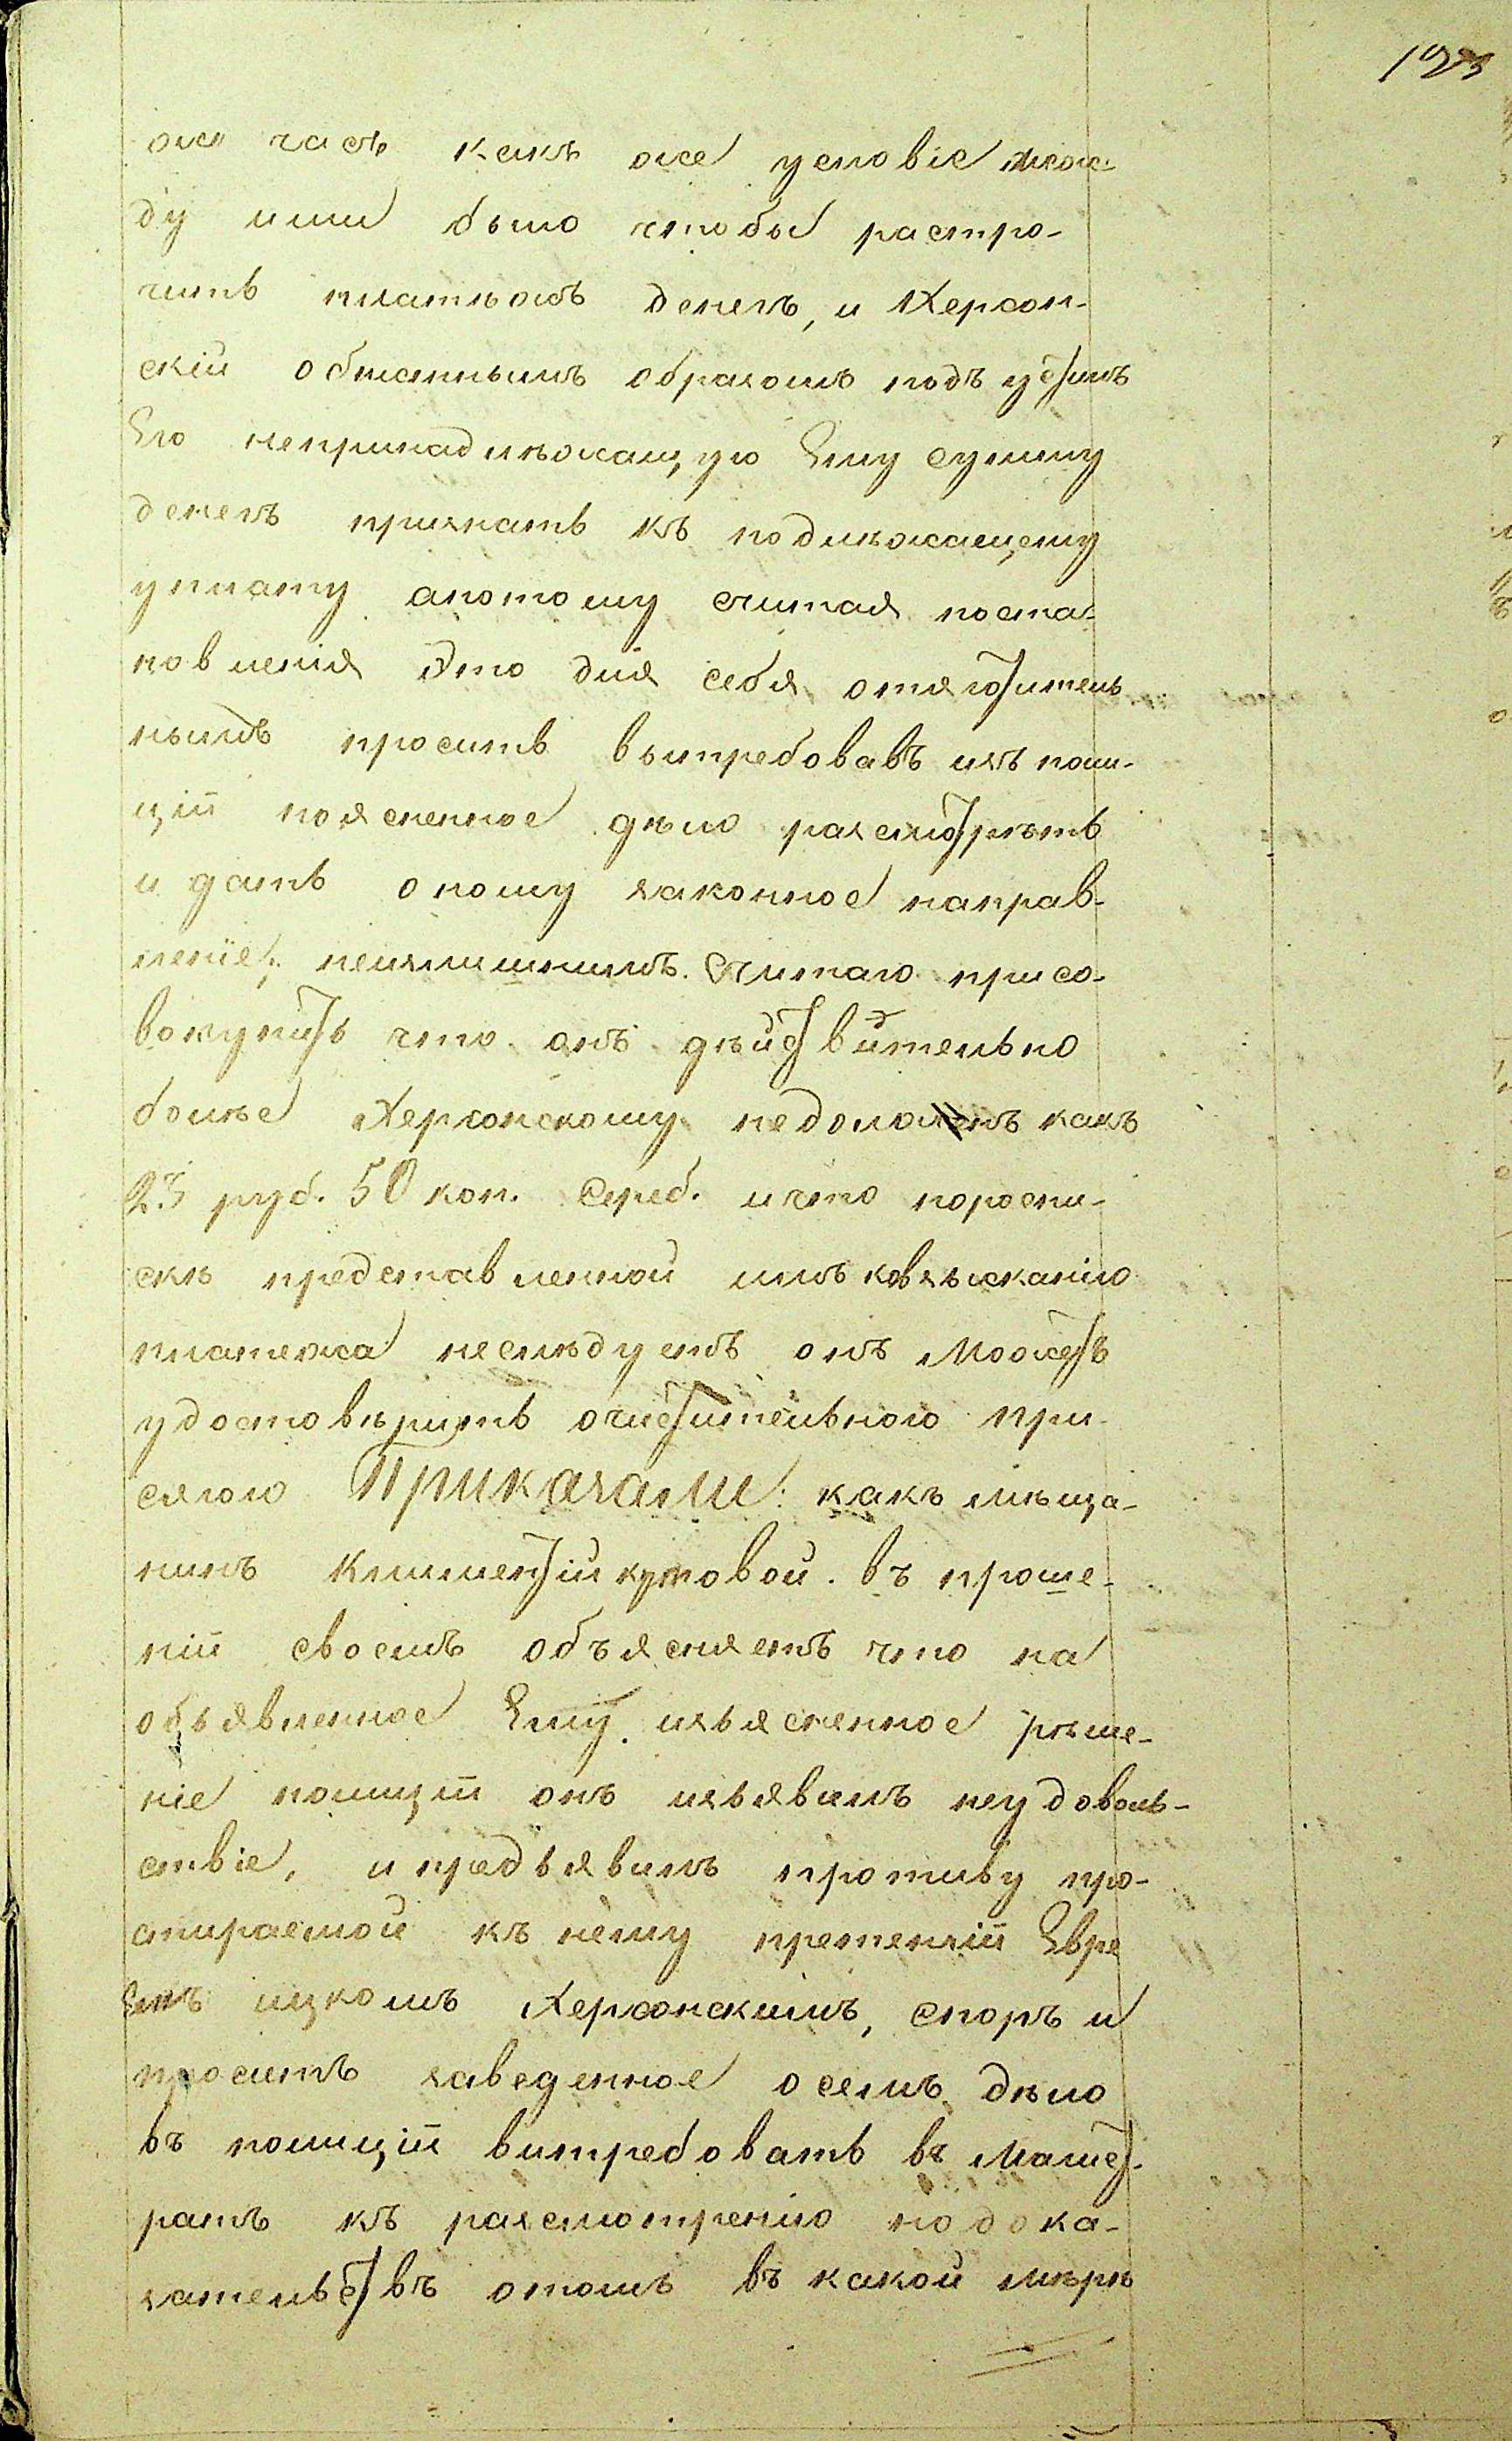 123
же часъ какъ же условіе меж-
ду ими было чтобы растро-
чить платежъ денегъ, и Херсон-
скій обманнымъ образомъ подъ
Его непринадлѣжащую Ему сумму
денегъ признать къ подлѣжащему
уплату апотому считая поста-
новленія Это для себя отяготитель
нымъ проситъ вытребовавъ изъ поли-
ціи поясненное дѣло разсмотрѣть
и дать оному законное направ-
леніе; неизлишнимъ считаю присо-
вокупить что онъ дѣйствительно
болѣе Херсонскому недолженъ какъ
23 руб. 50 коп. Сереб. ичто пороспи-
скѣ представленной имъ ковзысканію
платежа неслѣдуетъ онъ Можетъ
удостовѣрить очистительною при-
сягою Приказали: какъ мѣща-
нинъ Климентій кутовой въ проше-
ніи своемъ объясняетъ что на
объявленное Ему изъясненное рѣше-
ніе полиціи онъ изъявилъ неудоволь-
ствіе, и предъявилъ противу про-
стираемой къ нему претензіи Евре
Емъ ицкомъ Херсонскимъ, споръ и
проситъ заведенное осемъ дѣло
въ полиціи витребовать въ Магист-
ратъ къ разсмотренію подока-
зательствъ отомъ въ какой мѣрѣ